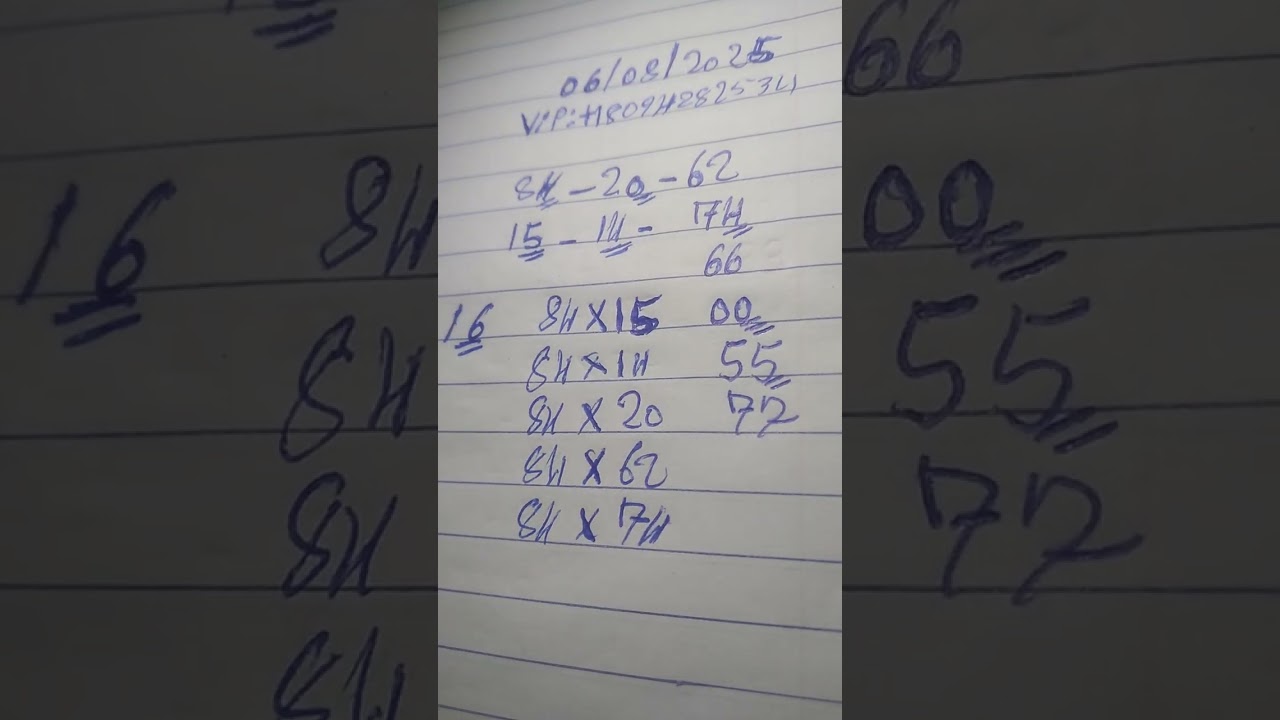 06/08/2025
VIP:+18094282534
84 - 20 - 62
15 - 14 - 74
66
16 84 X 15 00
84 X 14 55
84 X 20 77
84 X 62
84 X 74